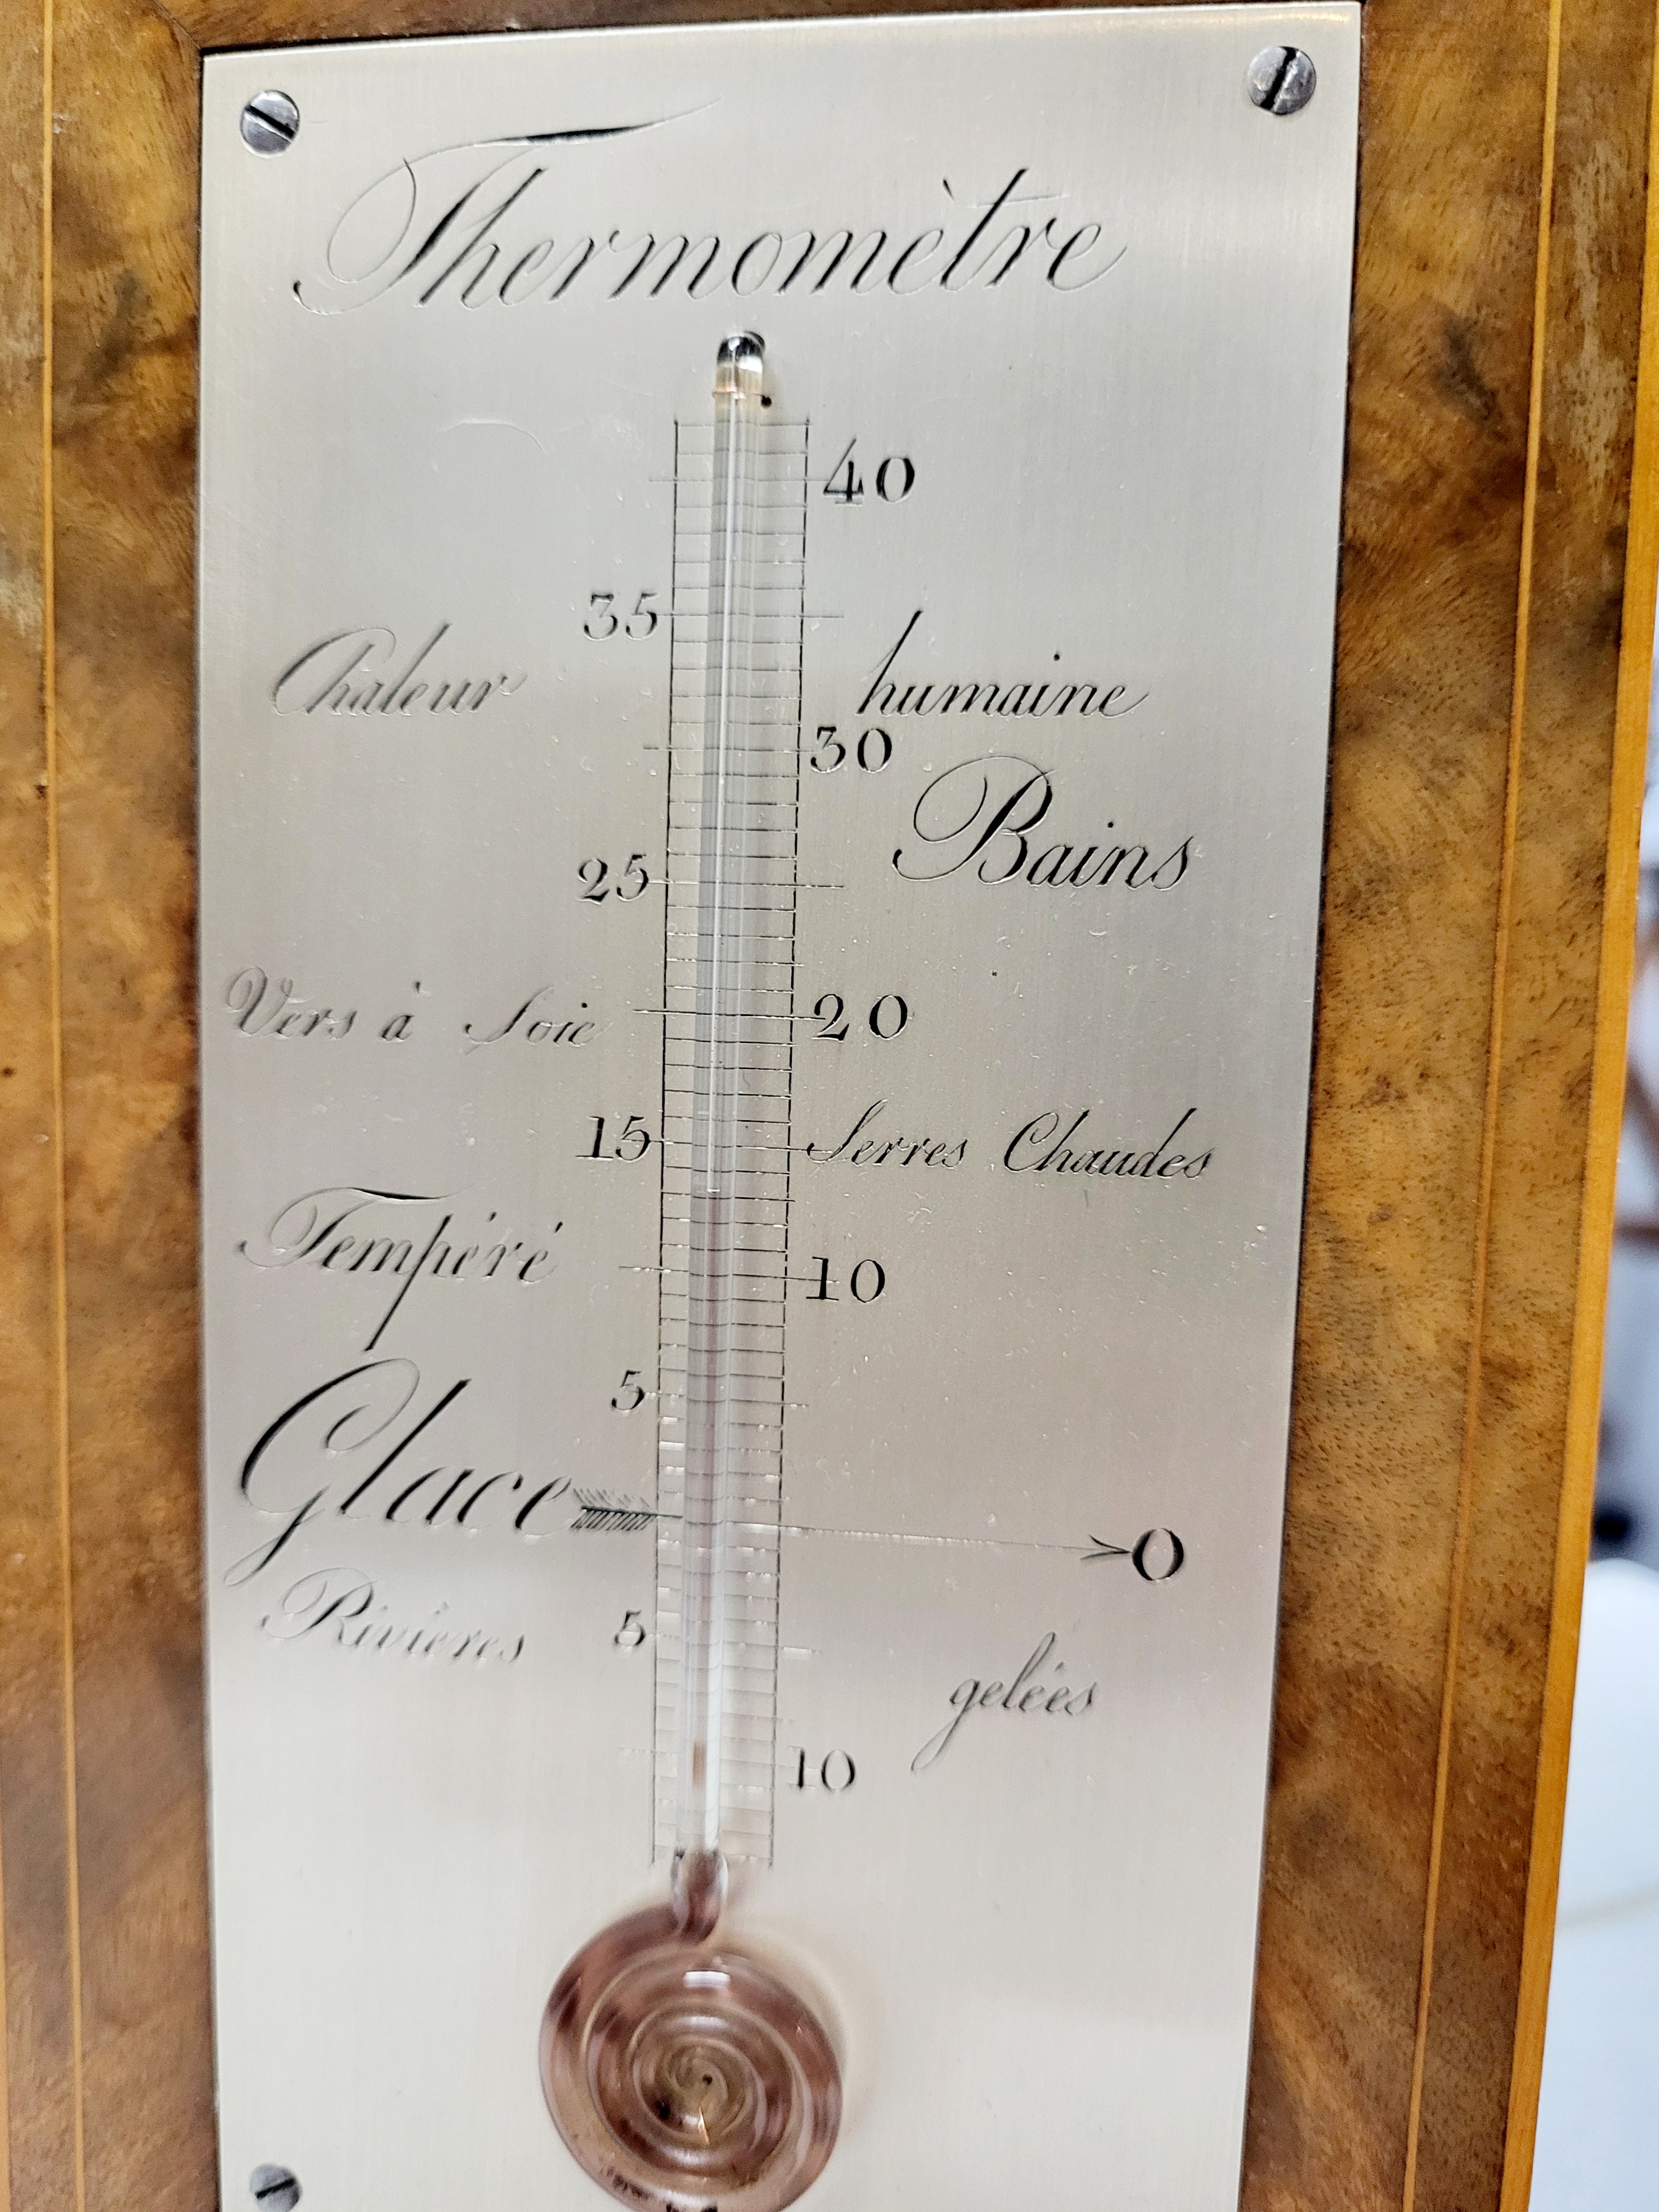 Thermomètre
40
35
Chaleur humaine
30
Bains
25
Vers à Soie 20
15 Serres Chaudes
Tempéré 10
5
Glace 0
Rivières 5 gelées
10